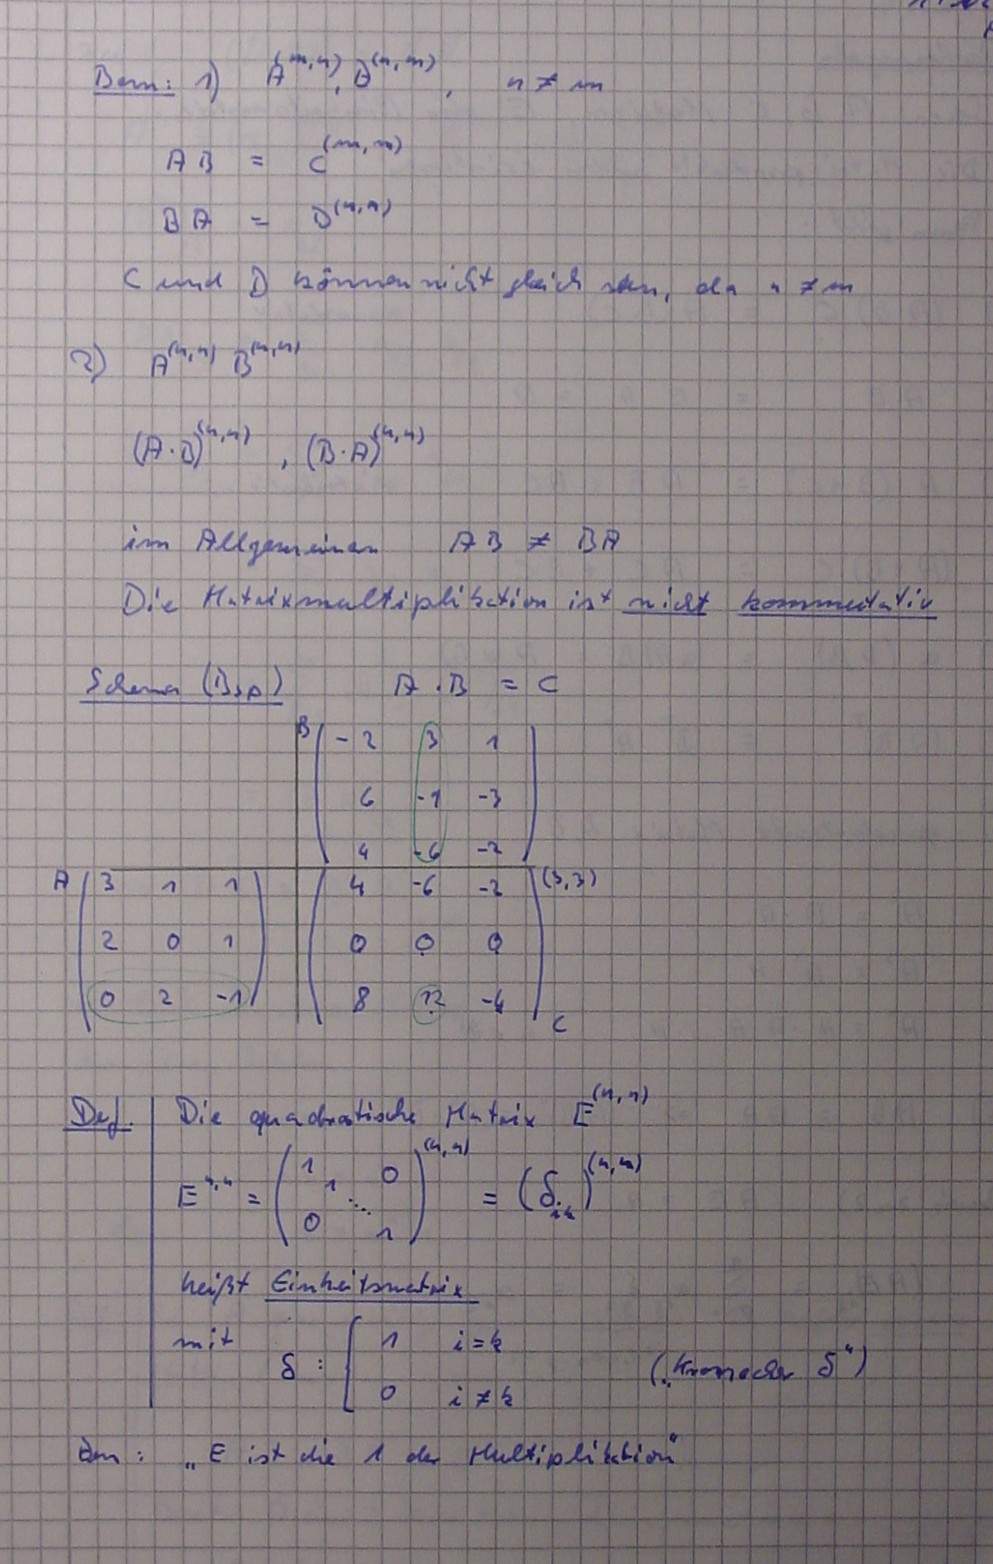 Bem: 1) A^(m,n), B^(n,m), n ≠ m
AB = C^(m,m)
BA = D^(n,n)
C und D können nicht gleich sein, da n ≠ m
2) A^(n,n) B^(n,n)
(A·B)^(n,n), (B·A)^(n,n)
im Allgemeinen AB ≠ BA
Die Matrixmultiplikation ist nicht kommutativ
Schema (Bsp) A · B = C
B
-2 3 1
6 -1 -3
4 -6 -2
A
3 1 1
2 0 1
0 2 -1
4 -6 -2 (3,3)
0 0 0
8 12 -4
C
Def. Die quadratische Matrix E^(n,n)
E^n,n = ( 1 1 ⋱ 1 0 0 )^(n,n) = (δ_ik)^(n,n)
heißt Einheitsmatrix
mit δ : { 1 i = k
0 i ≠ k („Kronecker δ“)
„E ist die 1 der Multiplikation“